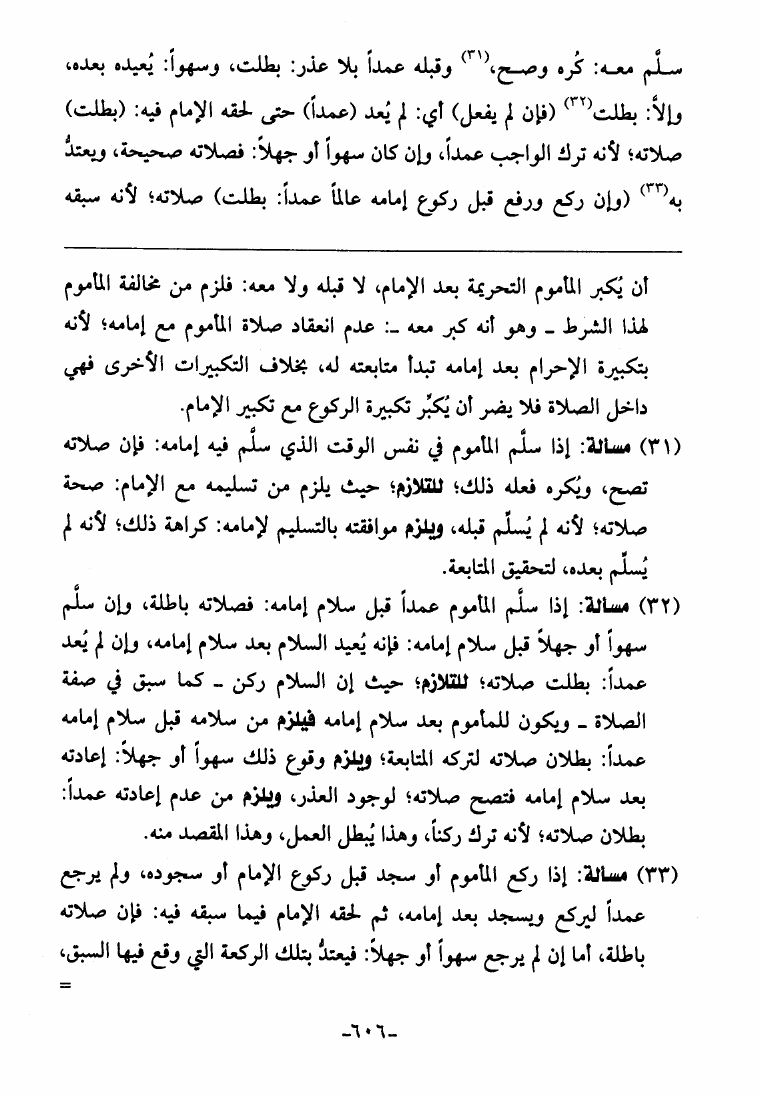 سلَّم معـه: كُره وصـح،(٣١) وقبله عمداً بلا عذر: بطلت، وسهواً: يُعيده بعده،
وإلاَّ: بطلت(٣٢) (فإن لم يفعل) أي: لم يُعد (عمداً) حتى لحقه الإمام فيه: (بطلت)
صلاته؛ لأنه ترك الواجب عمداً، وإن كان سهواً أو جهلاً: فصلاته صحيحة، ويعتدُّ
به(٣٣) (وإن ركع ورفع قبل ركوع إمامه عالماً عمداً: بطلت) صلاته؛ لأنه سبقه
أن يُكبر المأموم التحريمة بعد الإمام، لا قبله ولا معه: فلزم من مخالفة المأموم
لهذا الشرط ـ وهو أنه كبر معه ـ: عدم انعقاد صلاة المأموم مع إمامه؛ لأنه
بتكبيرة الإحرام بعد إمامه تبدأ متابعته له، بخلاف التكبيرات الأخرى فهي
داخل الصلاة فلا يضر أن يُكبِّر تكبيرة الركوع مع تكبير الإمام.
(٣١) مسألة: إذا سلَّم المأموم في نفس الوقت الذي سلَّم فيه إمامه: فإن صلاته
تصح، ويُكره فعله ذلك؛ للتلازم؛ حيث يلزم من تسليمه مع الإمام: صحة
صلاته؛ لأنه لم يُسلِّم قبله، ويلزم موافقته بالتسليم لإمامه: كراهة ذلك؛ لأنه لم
يُسلِّم بعده، لتحقيق المتابعة.
(٣٢) مسألة: إذا سلَّم المأموم عمداً قبل سلام إمامه: فصلاته باطلة، وإن سلَّم
سهواً أو جهلاً قبل سلام إمامه: فإنه يُعيد السلام بعد سلام إمامه، وإن لم يُعد
عمداً: بطلت صلاته؛ للتلازم؛ حيث إن السلام ركن ـ كما سبق في صفة
الصلاة ـ ويكون للمأموم بعد سلام إمامه فيلزم من سلامه قبل سلام إمامه
عمداً: بطلان صلاته لتركه المتابعة؛ ويلزم وقوع ذلك سهواً أو جهلاً: إعادته
بعد سلام إمامه فتصح صلاته؛ لوجود العذر، ويلزم من عدم إعادته عمداً:
بطلان صلاته؛ لأنه ترك ركناً، وهذا يُبطل العمل، وهذا المقصد منه.
(٣٣) مسألة: إذا ركع المأموم أو سجد قبل ركوع الإمام أو سجوده، ولم يرجع
عمداً ليركع ويسجد بعد إمامه، ثم لحقه الإمام فيما سبقه فيه: فإن صلاته
باطلة، أما إن لم يرجع سهواً أو جهلاً: فيعتدُّ بتلك الركعة التي وقع فيها السبق،
=
-٦٠٦-